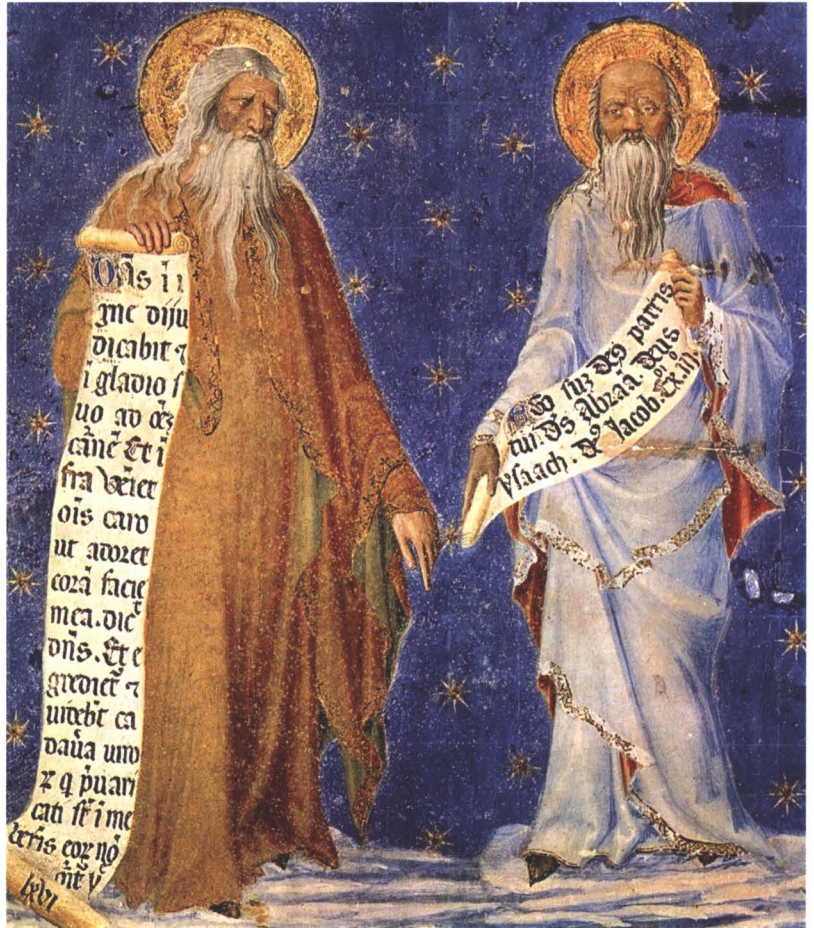 Dñs ī i
gne diju
dicabit ⁊
ī gladio ſ
uo ad oēz
carnē Et ī
fra veniet
oīs caro
ut adoret
corā facie
mea. dic̄
dñs. Et e
gredieť ⁊
videbt̄ ca
dav̄a viro
ꝝ q p̄uari
cati ſt̄ ī me
v̄mis eoꝝ nō
lxvi
Ego ſuʒ Dꝰ patris
tui. Ds̄ Abraā. Deus
Yſaach. Dꝰ Jacob. Ex. iij.